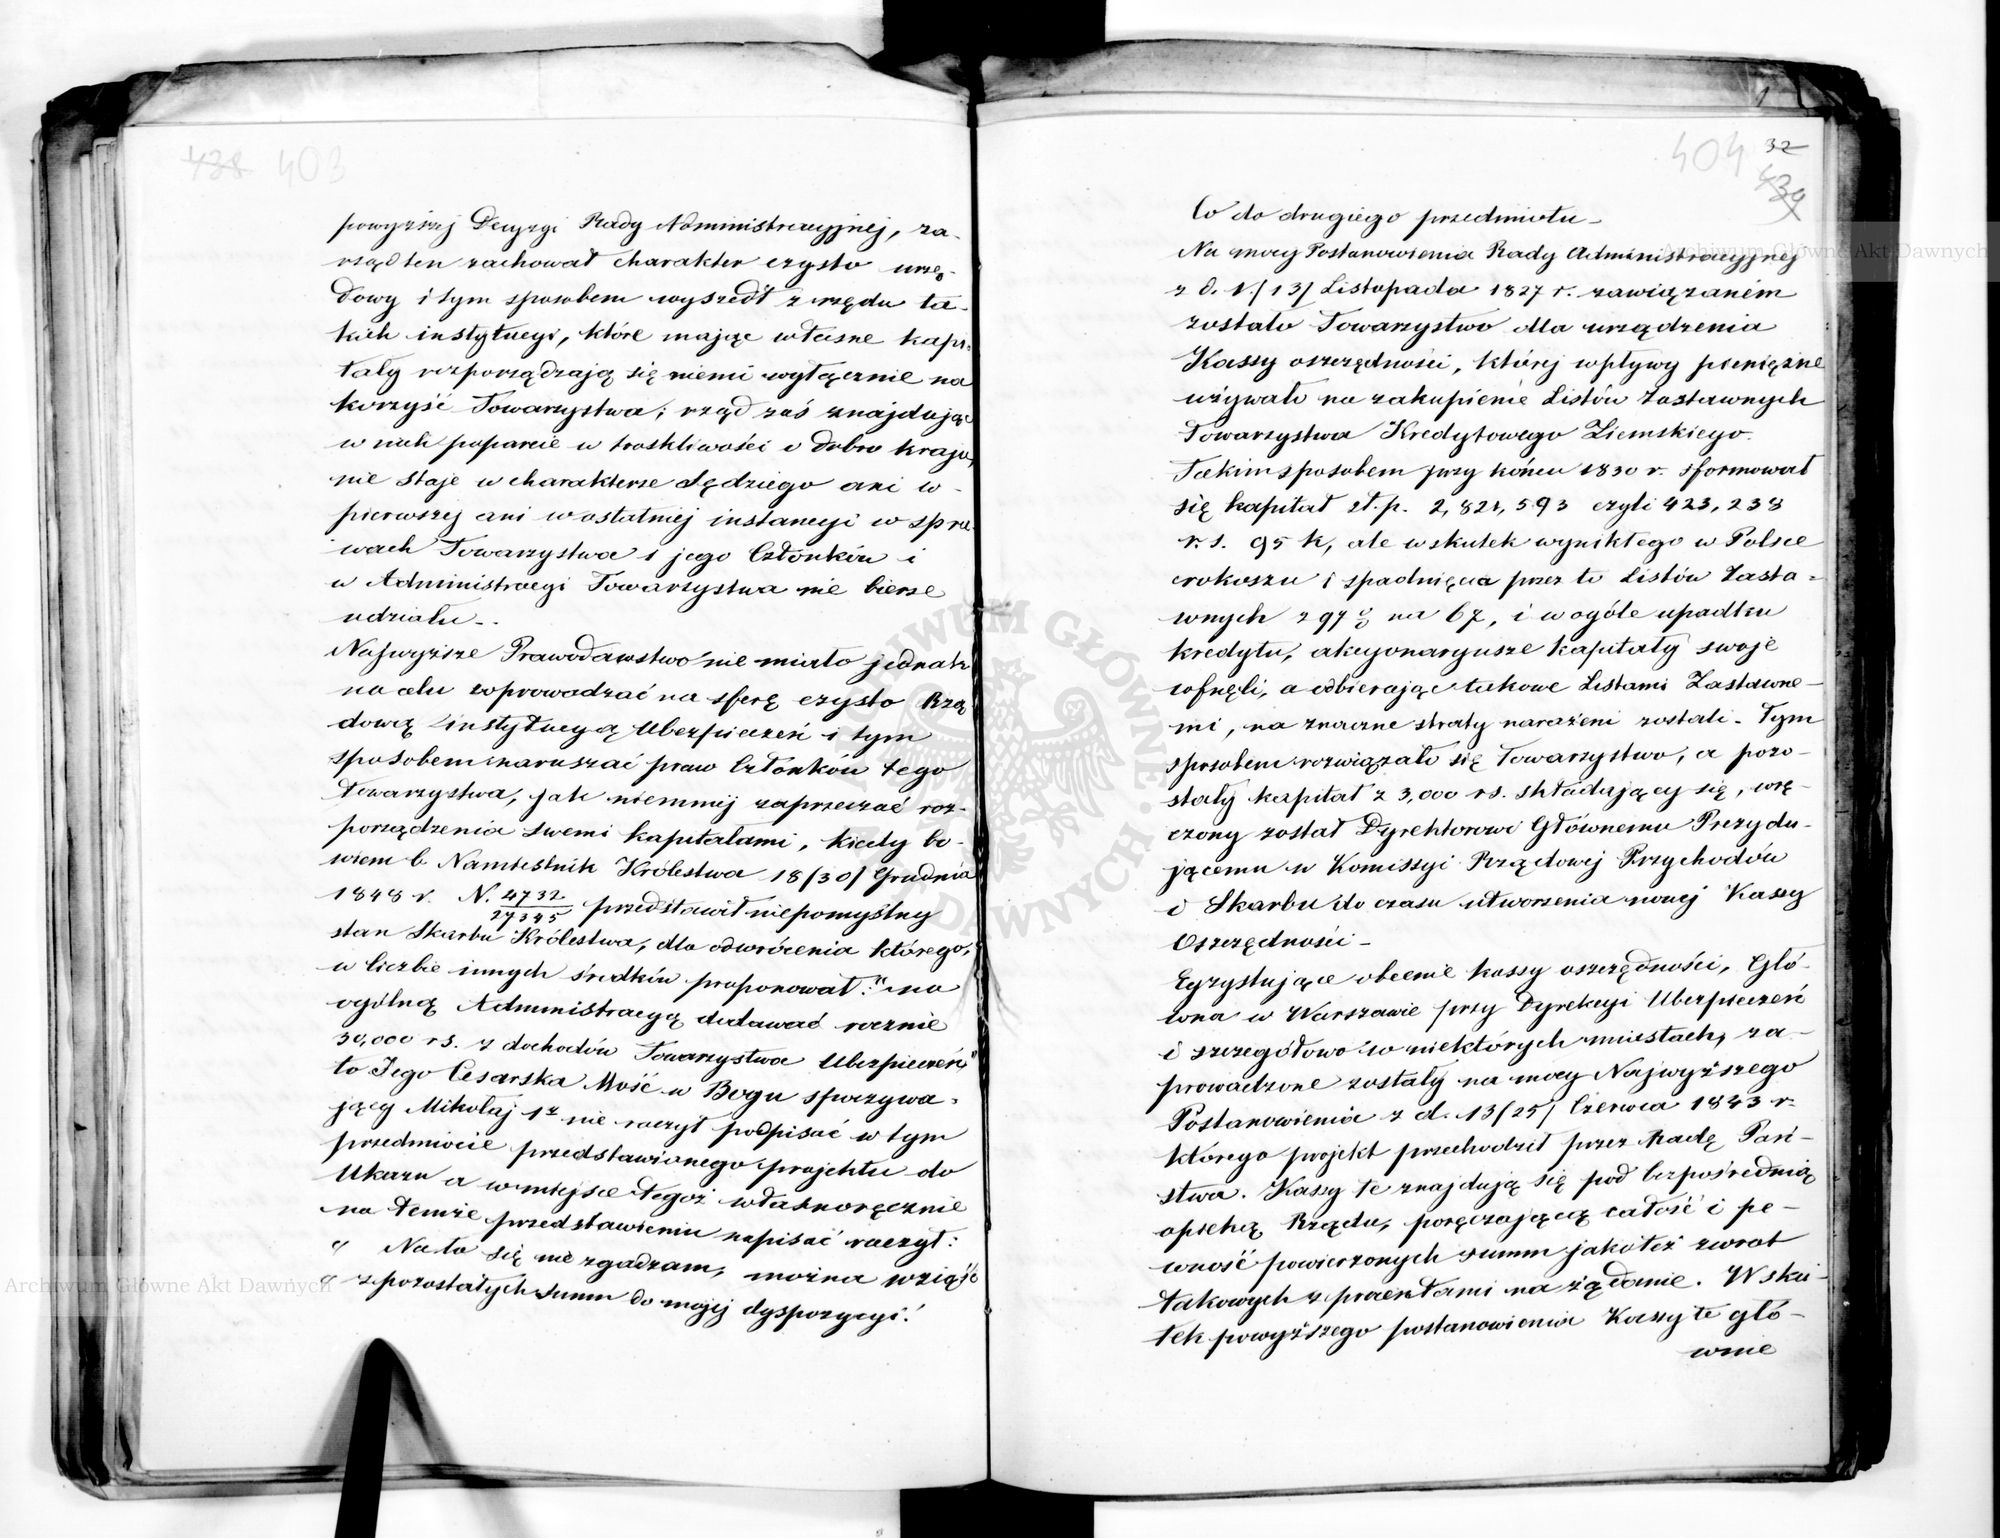 438 403
powyższej Decyzyi Rady Administracyjnej, za-
rząd ten zachował charakter czysto urzę-
dowy i tym sposobem wyszedł z rzędu ta-
kich instytucyi, które mając własne kapi-
tały rozporządzają się niemi wyłącznie na
korzyść Towarzystwa; rząd zaś znajdując
w nich poparcie w troskliwości o dobro kraju,
nie staje w charakterze Sędziego ani w
pierwszej ani w ostatniej instancyi w spra-
wach Towarzystwa i jego Członków i
w Administracyi Towarzystwa nie bierze
udziału.
Najwyższe Prawodawstwo nie miało jednak
na celu wprowadzać na sferę czysto Rzą
dową instytucyą Ubezpieczeń i tym
sposobem naruszać praw Członków tego
Towarzystwa, jak niemniej zaprzeczać roz-
porządzenia swemi kapitałami, kiedy bo-
wiem b. Namiestnik Królestwa 18/30/ Grudnia
1848 r. N. 4732/27345 przedstawił niepomyślny
stan Skarbu Królestwa, dla odwrócenia którego,
w liczbie innych środków proponował: "na
ogólną Administracyą dodawać rocznie
30,000 rs. z dochodów Towarzystwa Ubezpieczeń"
to Jego Cesarska Mość w Bogu spoczywa-
jący Mikołaj 1r nie raczył podpisać w tym
przedmiocie przedstawionego projektu do
Ukazu a w miejsce tegoż własnoręcznie
na temże przedstawieniu napisać raczył:
" Na to się nie zgadzam, można wziąść
" z pozostałych summ do mojej dyspozycyi.'
404 32
439
Co do drugiego przedmiotu-
Na mocy Postanowienia Rady Administracyjnej
z d. 1/13/ Listopada 1827 r. zawiązaném
zostało Towarzystwo dla urządzenia
Kassy oszczędności, której wpływy pieniężne
używało na zakupienie Listów Zastawnych
Towarzystwa Kredytowego Ziemskiego.
Takim sposobem przy końcu 1830 r. sformował
się kapitał zł.p. 2,821,593 czyli 423,238
r.s. 95 k, ale w skutek wynikłego w Polsce
rokoszu i spadnięcia przez to Listów Zasta-
wnych z 97% na 67, i w ogóle upadku
kredytu, akcyonaryusze kapitały swoje
cofnęli, a odbierając takowe Listami Zastawne-
mi, na znaczne straty narażeni zostali. Tym
sposobem rozwiązało się Towarzystwo, a pozo-
stały kapitał z 3,000 rs. składający się, wrę-
czony został Dyrektorowi Głównemu Prezydu-
jącemu w Komissyi Rządowej Przychodów
i Skarbu do czasu utworzenia nowej Kassy
Oszczędności-
Egzystujące obecnie kassy oszczędności, Głó-
wna w Warszawie przy Dyrekcyi Ubezpieczeń
i szczegółowo w niektórych miastach, za-
prowadzone zostały na mocy Najwyższego
Postanowienia z d. 13/25/ Czerwca 1843 r.
którego projekt przechodził przez Radę Pań-
stwa. Kassy te znajdują się pod bezpośrednią
opieką Rządu, poręczającą całość i pe-
wność powierzonych summ jakoteż zwrot
takowych z procentami na żądanie. W sku-
tek powyższego postanowienia Kassy te głó-
wnie
Archiwum Główne Akt Dawnych
Archiwum Główne Akt Dawnych
ARCHIWUM GŁÓWNE AKT DAWNYCH